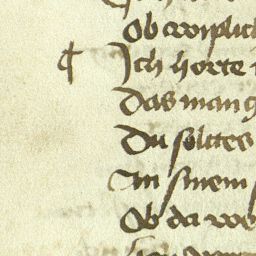 Ob croplich
¶ Ich horte
Das man
Du soltes
An sinem
Ob da we